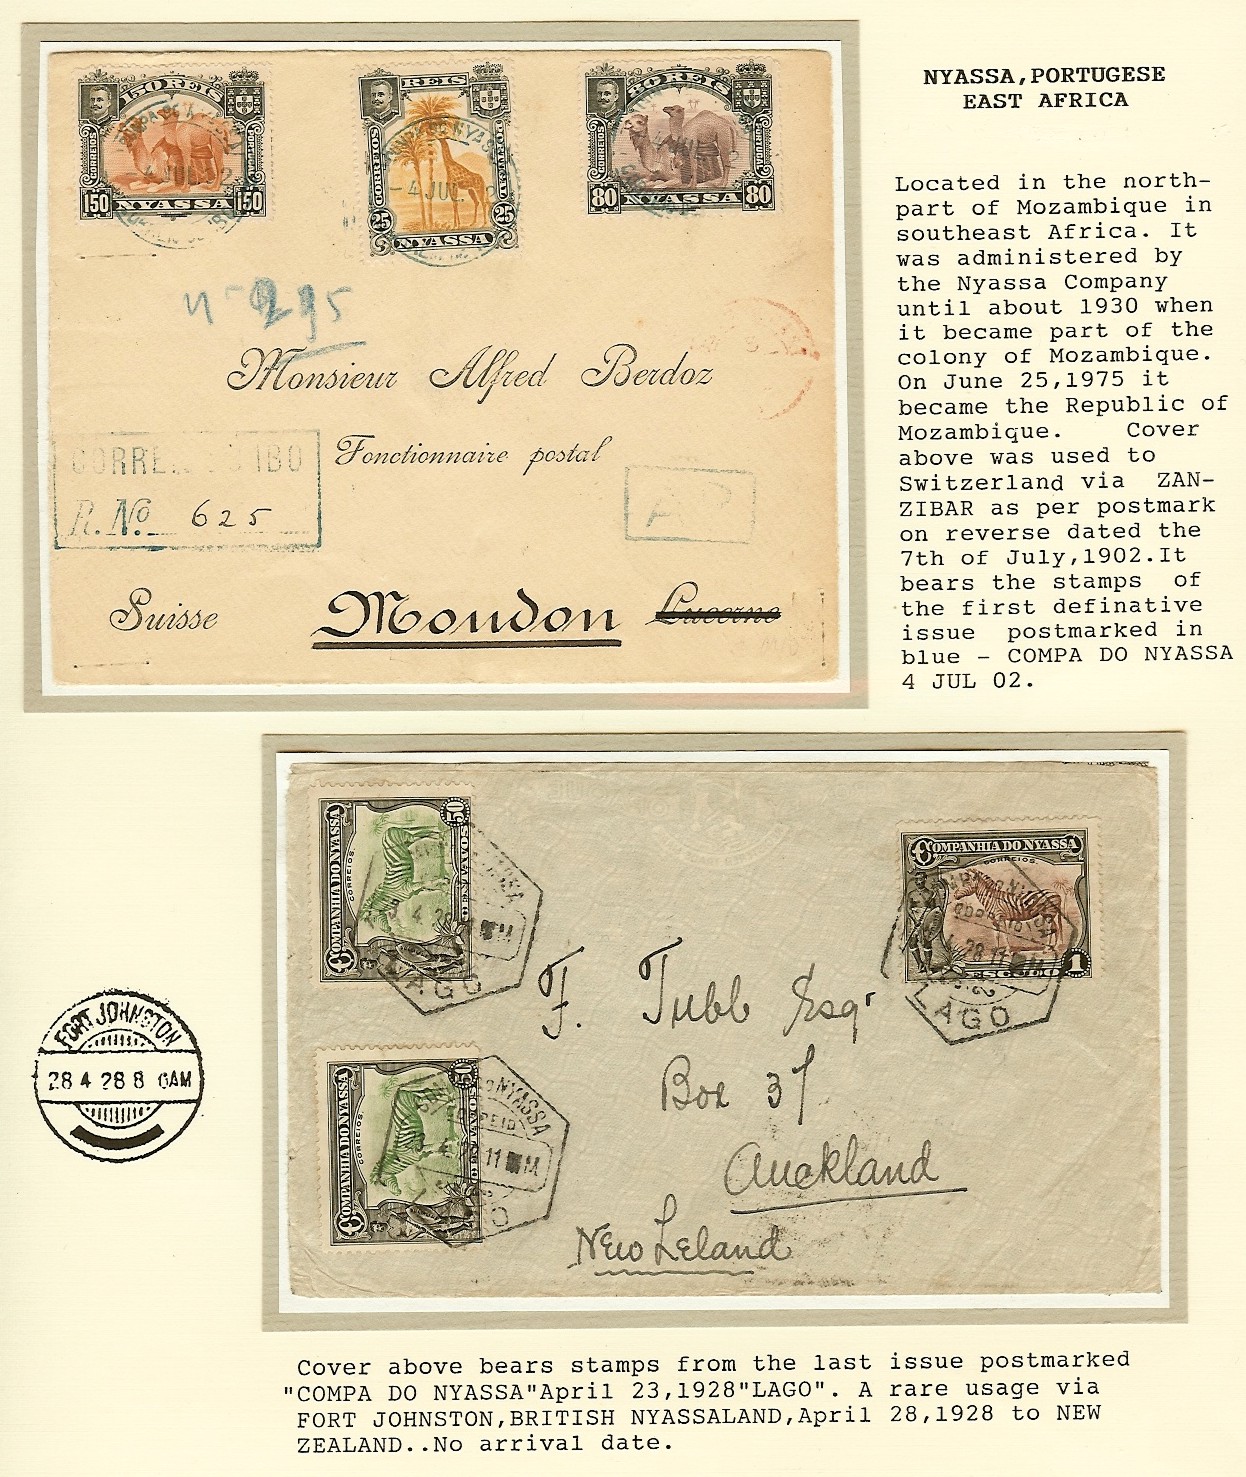 150 REIS
CORREIOS
150 150
NYASSA
REIS
CORREIOS
25 25
NYASSA
80 REIS
CORREIOS PORTUGAL
80 80
NYASSA
- 4 JUL. 
nº 295
Monsieur Alfred Berdoz
Fonctionnaire postal
IBO
R. No. 625
Suisse Moudon Lucerne
NYASSA,PORTUGESE
EAST AFRICA
Located in the north-
part of Mozambique in
southeast Africa. It
was administered by
the Nyassa Company
until about 1930 when
it became part of the
colony of Mozambique.
On June 25,1975 it
became the Republic of
Mozambique. Cover
above was used to
Switzerland via ZAN-
ZIBAR as per postmark
on reverse dated the
7th of July,1902.It
bears the stamps of
the first definative
issue postmarked in
blue - COMPA DO NYASSA
4 JUL 02.
COMPANHIA DO NYASSA
CORREIOS.
50
CENTAVOS
LAGO
COMPANHIA DO NYASSA
CORREIOS.
ESCUDO 1
LAGO
COMPANHIA DO NYASSA
CORREIOS.
50
NYASSA
F. Tubb Esqr
Box 37
Auckland
New Zeland
FORT JOHNSTON
28 4 28 8 AM
Cover above bears stamps from the last issue postmarked
"COMPA DO NYASSA"April 23,1928"LAGO". A rare usage via
FORT JOHNSTON,BRITISH NYASSALAND,April 28,1928 to NEW
ZEALAND..No arrival date.